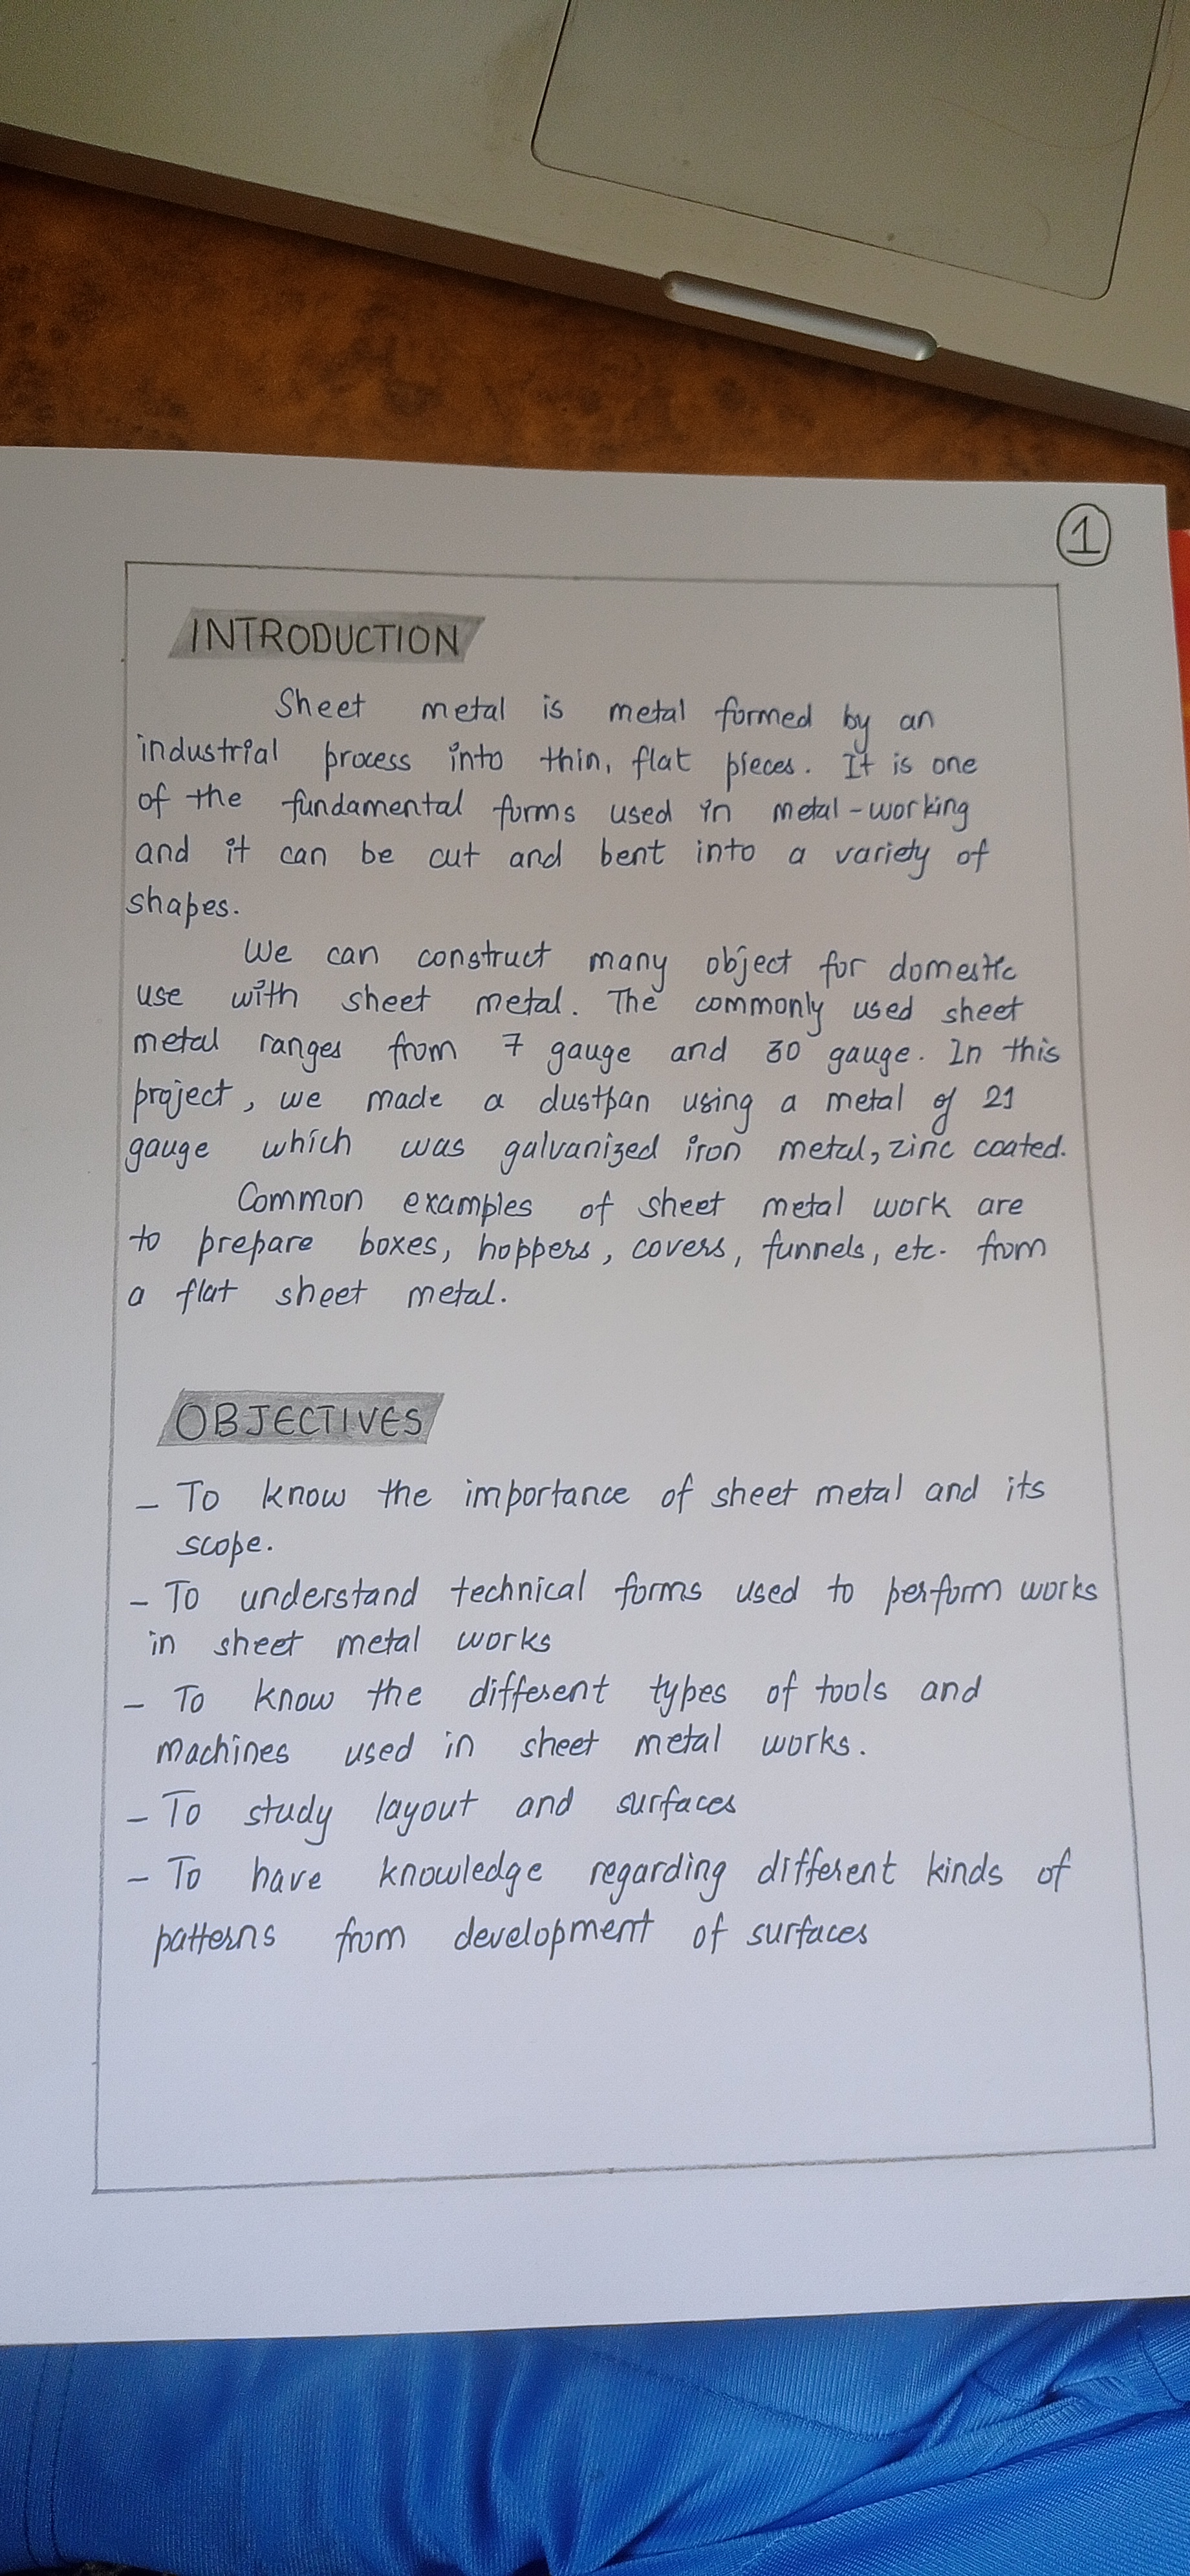 1
INTRODUCTION
Sheet metal is metal formed by an
industrial process into thin, flat pieces. It is one
of the fundamental forms used in metal-working
and it can be cut and bent into a variety of
shapes.
We can construct many object for domestic
use with sheet metal. The commonly used sheet
metal ranges from 7 gauge and 30 gauge. In this
project, we made a dustpan using a metal of 21
gauge which was galvanized iron metal, zinc coated.
Common examples of sheet metal work are
to prepare boxes, hoppers, covers, funnels, etc. from
a flat sheet metal.
OBJECTIVES
- To know the importance of sheet metal and its
scope.
- To understand technical forms used to perform works
in sheet metal works
- To know the different types of tools and
machines used in sheet metal works.
- To study layout and surfaces
- To have knowledge regarding different kinds of
patterns from development of surfaces